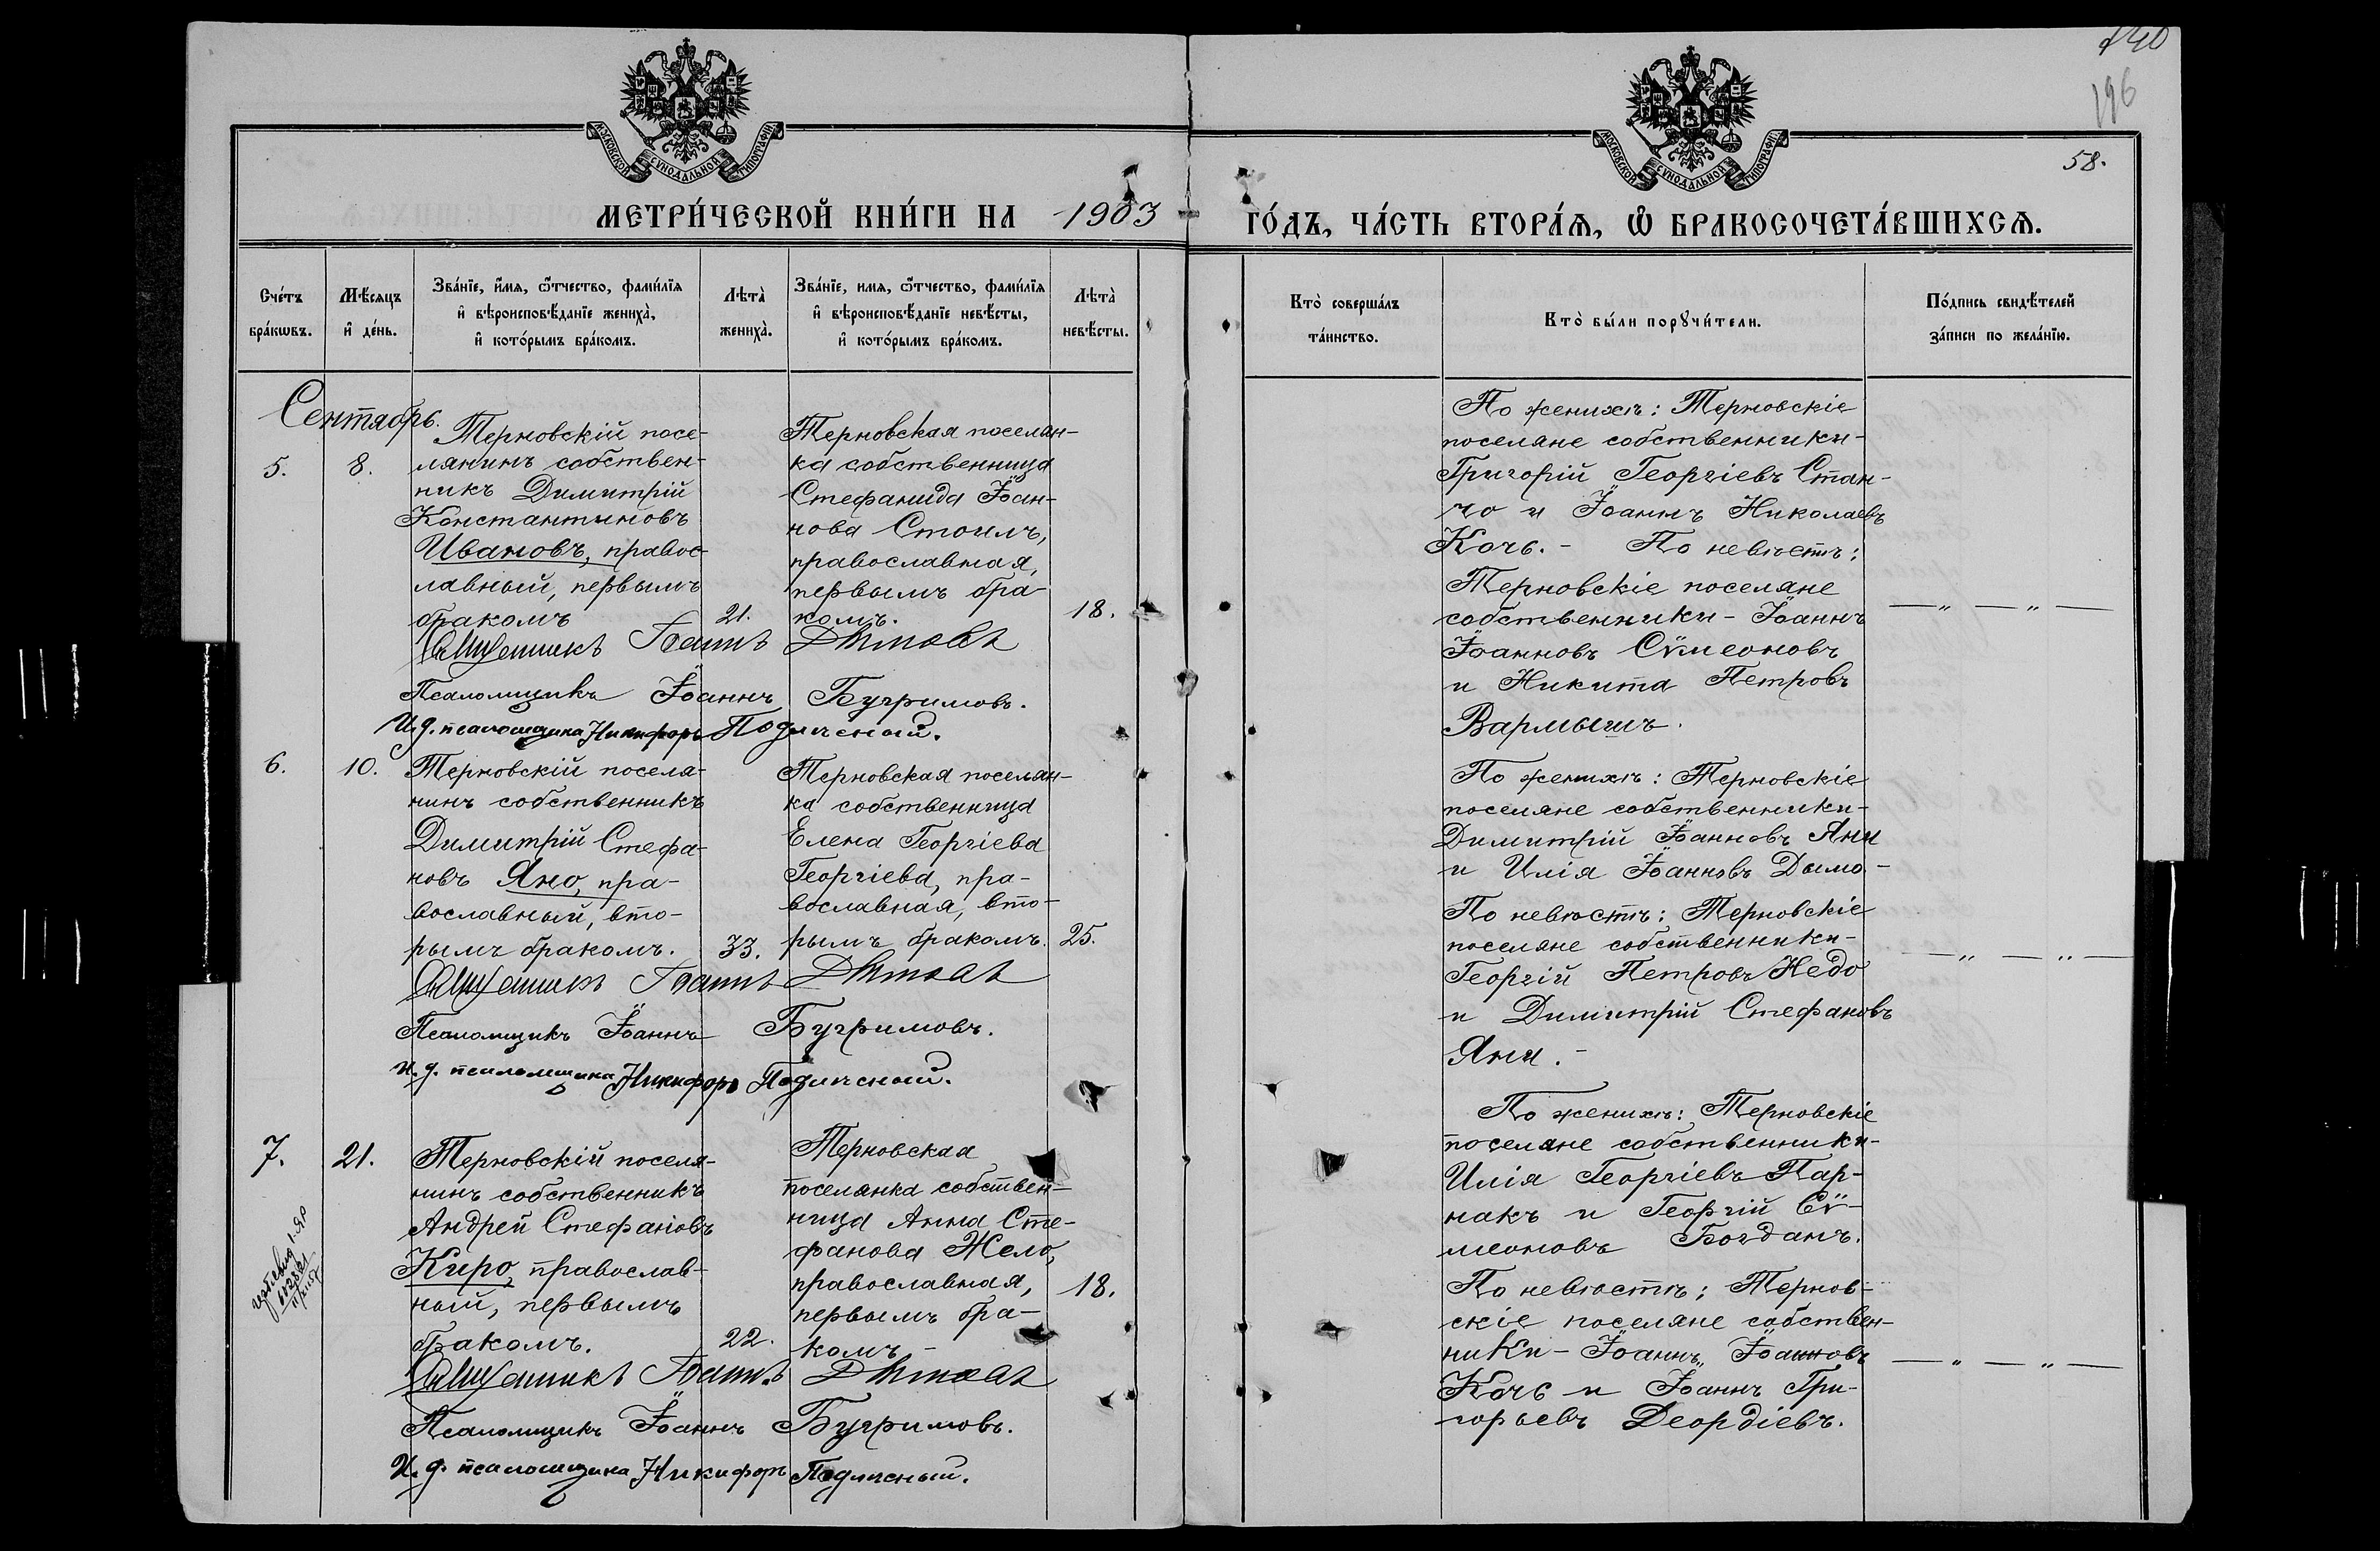 140
196
58.
МОСКОВСКОЙ СУНОДАЛЬНОЙ ТИПОГРАФІИ
МОСКОВСКОЙ СУНОДАЛЬНОЙ ТИПОГРАФІИ
МЕТРИ́ЧЕСКОЙ КНИ́ГИ НА 1903 ГО́ДЪ, ЧА́СТЬ ВТОРА́Ѧ, Ѽ БРАКОСОЧЕТА́ВШИХСѦ.
Сче́тъ бра́кѡвъ.
Мѣ́сяцъ и҆ де́нь.
Зва́нїе, и҆́мѧ, ѻ҆́тчество, фами́лїѧ и҆ вѣроисповѣ́данїе жениха̀, и҆ кото́рымъ бра́комъ.
Лѣта̀ жениха̀.
Зва́нїе, имѧ, ѻ҆́тчество, фами́лїѧ и҆ вѣроисповѣ́данїе невѣ́сты, и҆ кото́рымъ бра́комъ.
Лѣта̀ невѣ́сты.
Кто̀ соверша́лъ та́инство.
Кто̀ бы́ли порꙋчи́тели.
По́дпись свидѣ́телей за́писи по жела́нїю.
Сентябрь.
5.
8.
Терновскій посе-
лянинъ собствен-
никъ Димитрій
Константиновъ
Ивановъ, правос-
лавный, первымъ
бракомъ
21.
Терновская поселян-
ка собственница
Стефанида Іоан-
нова Стоилъ,
православная,
первымъ бра-
комъ.
18.
Священникъ Іоаннъ
Псаломщикъ Іоаннъ Бугримовъ.
И.д. псаломщика Никифоръ
По женихѣ: Терновскіе
поселяне собственники-
Григорій Георгіевъ Стан-
чо и Іоаннъ Николаевъ
Кочь. - По невѣстѣ:
Терновскіе поселяне
собственники - Іоаннъ
Іоанновъ Сѵмеоновъ
и Никита Петровъ
Вармышъ.
— " — " —
6.
10.
Терновскій поселя-
нинъ собственникъ
Димитрій Стефа-
новъ Яно, пра-
вославный, вто-
рымъ бракомъ.
33.
Терновская поселян-
ка собственница
Елена Георгіева
Георгіева, пра-
вославная, вто-
рымъ бракомъ.
25.
Священникъ Іоаннъ
Псаломщикъ Іоаннъ Бугримовъ.
И.д. псаломщика Никифоръ
По женихѣ: Терновскіе
поселяне собственники-
Димитрій Іоанновъ Яни
и Илія Іоанновъ Дымо -
По невѣстѣ: Терновскіе
поселяне собственники-
Георгій Петровъ Недо
и Димитрій Стефановъ
Яни. -
— " — " —
7.
21.
Терновскій поселя-
нинъ собственникъ
Андрей Стефановъ
Киро, православ-
ный, первымъ
бракомъ.
22.
Терновская
поселянка собствен-
ница Анна Сте-
фанова Жело,
православная,
первымъ бра-
комъ -
18.
Священникъ Іоаннъ
Псаломщикъ Іоаннъ Бугримовъ.
И.д. псаломщика Никифоръ
По женихѣ: Терновскіе
поселяне собственники-
Илія Георгіевъ Пар-
накъ и Георгій Сѵ-
меоновъ Богданъ.
По невѣстѣ: Тернов-
скіе поселяне собствен-
ники - Іоаннъ Іоанновъ
Кочь и Іоаннъ Гри-
горьевъ Деордіевъ.
— " — " —